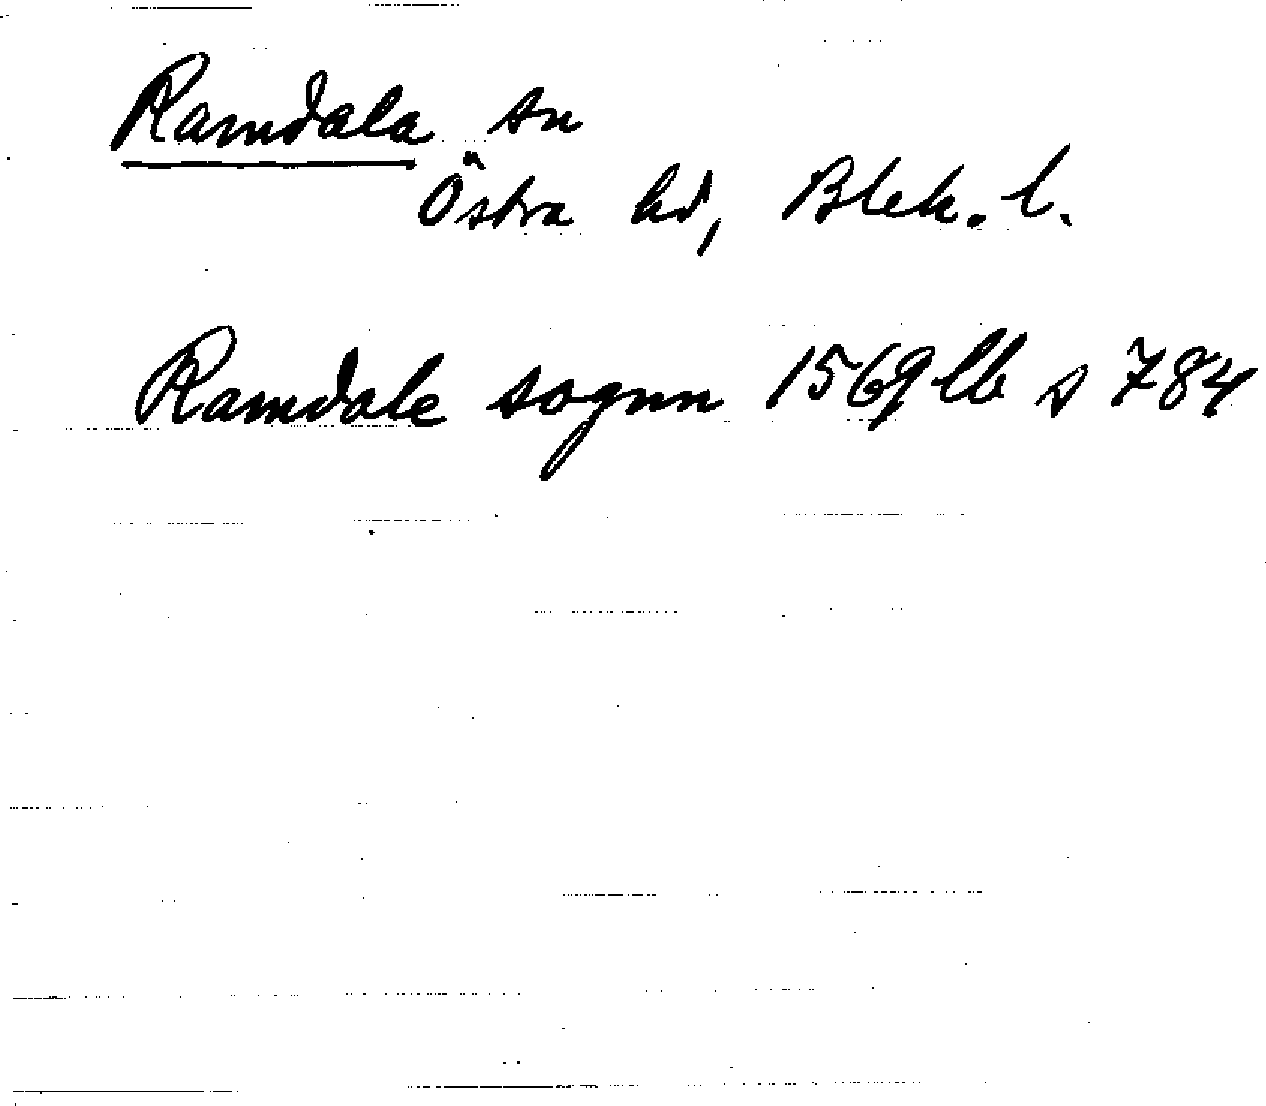 Ramdala sn
Östra hd, Blek. l.
Ramdale sognn 1569 lb s 784